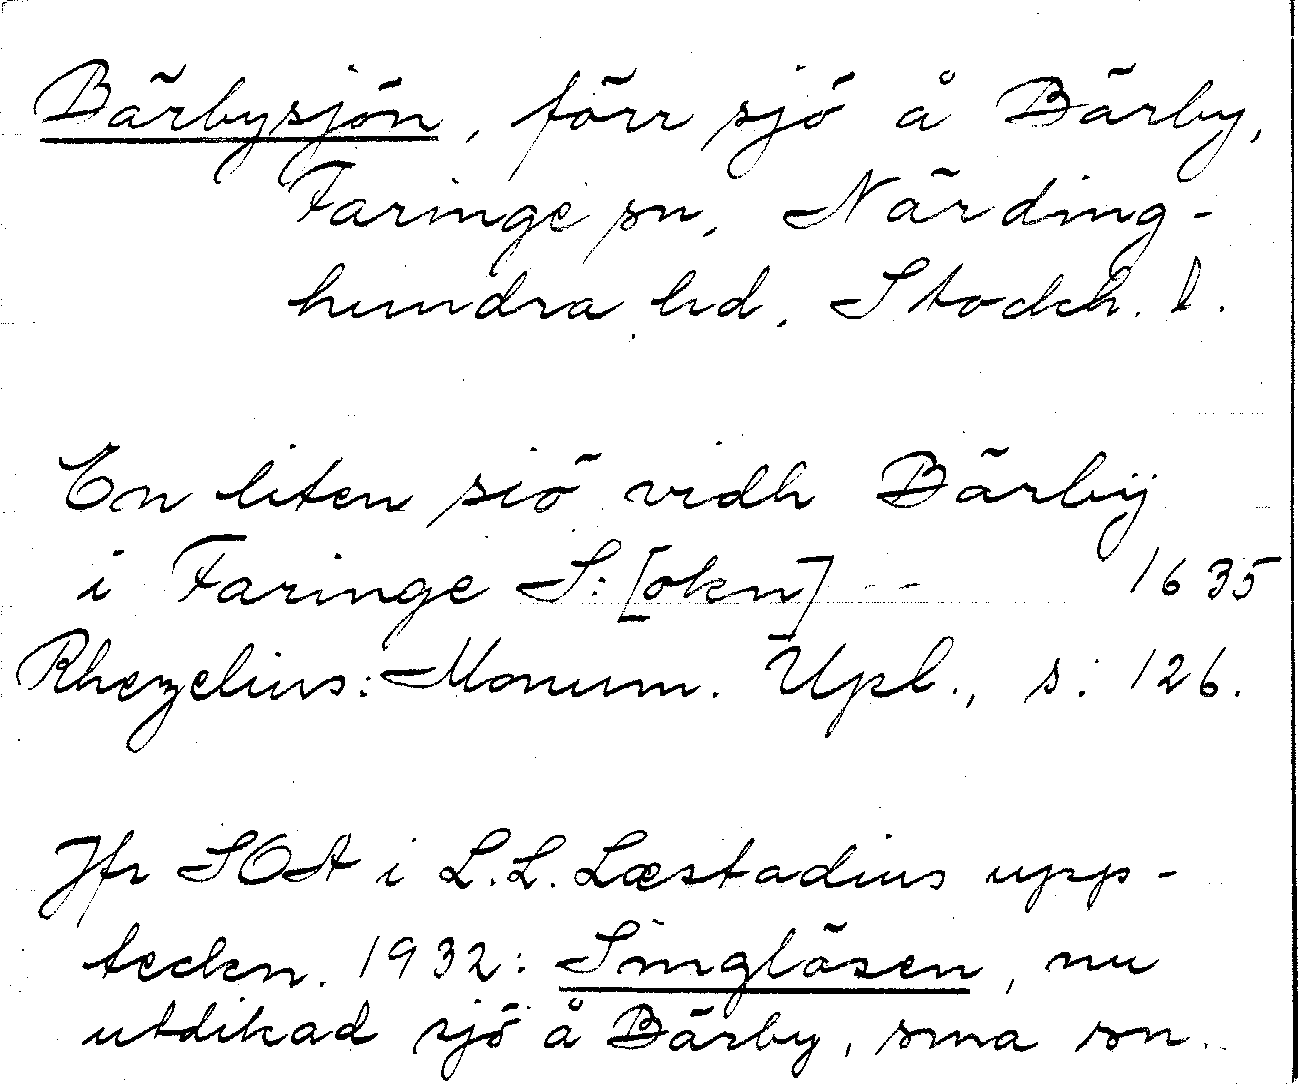 Bärbysjön, förr sjö å Bärby,
Faringe sn, Närding-
hundra hd, Stockh. l.
En liten siö vidh Bärbÿ
i Faringe S:[okn] -- 1635
Rhezelius: Monum. Upl., s. 126.
Jfr SOA i L.L. Læstadius upp-
teckn. 1932: Singlösen, nu
utdikad sjö å Bärby, sma sn.